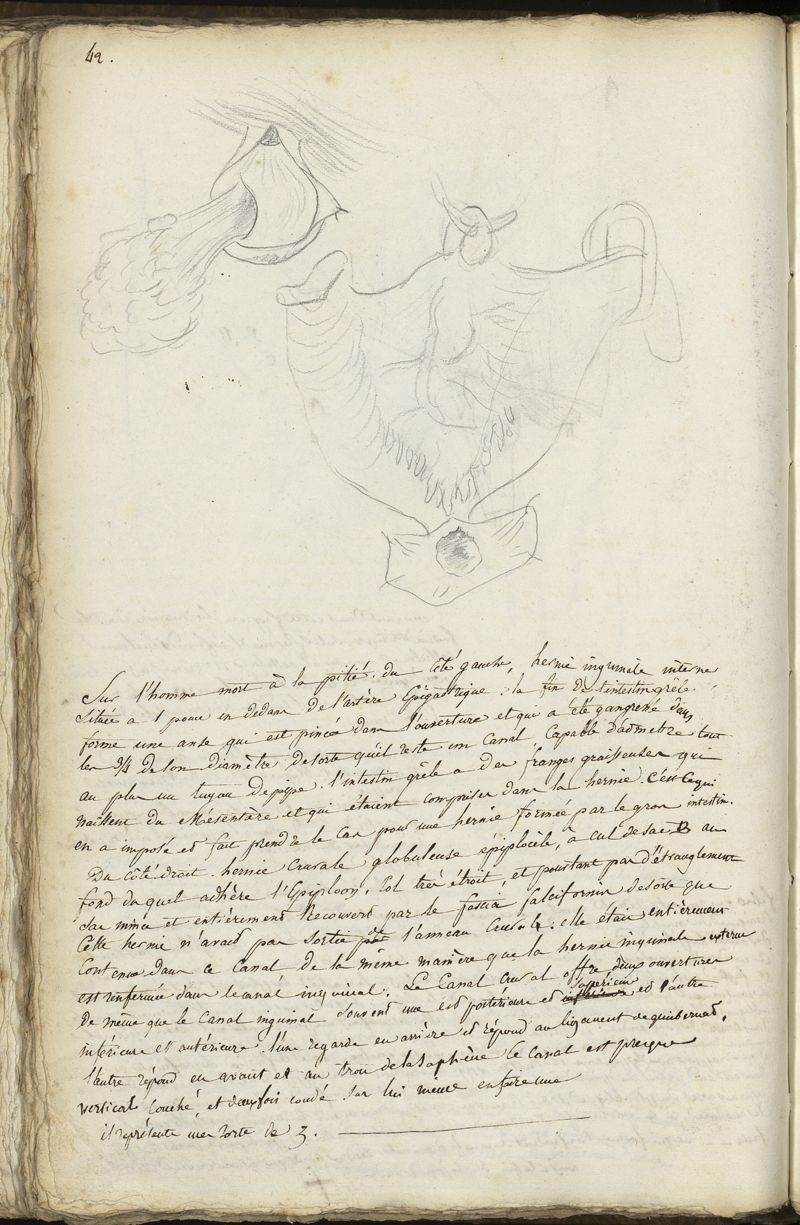 42.
Sur l'homme mort à la pitié. du côté gauche, hernie inguinale interne
située a 1 pouce en dedans de l'artère épigastrique. la fin de l'intestin grêle
forme une anse qui est pincée dans l'ouverture et qui a été gangrené dans
les 3/4 de son diamètre desorte qu'il reste un canal capable d'admetre tout
au plus un tuyau de pipe. l'intestin grêle a des franges graisseuses qui
naissent du Mésentère et qui étaient comprises dans la hernie. c'est ce qui
en a imposé et fait prendre le cas pour une hernie formée par le gros intestin.
Du côté droit. hernie crurale globuleuse épiplocèle, à cul de sac au
fond du quel adhère l'Epiploon, Col très étroit, et pourtant pas d'étranglement
sac mince et entièrement recouvert par le fascia falciformis desorte que
Cette hernie n'avait pas sortie de l'anneau crural. elle était entièrement
Contenue dans ce Canal de la même manière que la hernie inguinale externe
est renfermée dans le canal inguinal. Le Canal crural offre deux ouvertures
De même que le Canal inguinal dont une est postérieure et supérieure et l'autre
inférieure et antérieure. l'une regarde en arrière et répond au ligament de guimbernat,
l'autre répond en avant et au trou de la saphène le canal est presque
vertical couché, et deux fois coudé sur lui même enfaire une
il représente une sorte de Z.